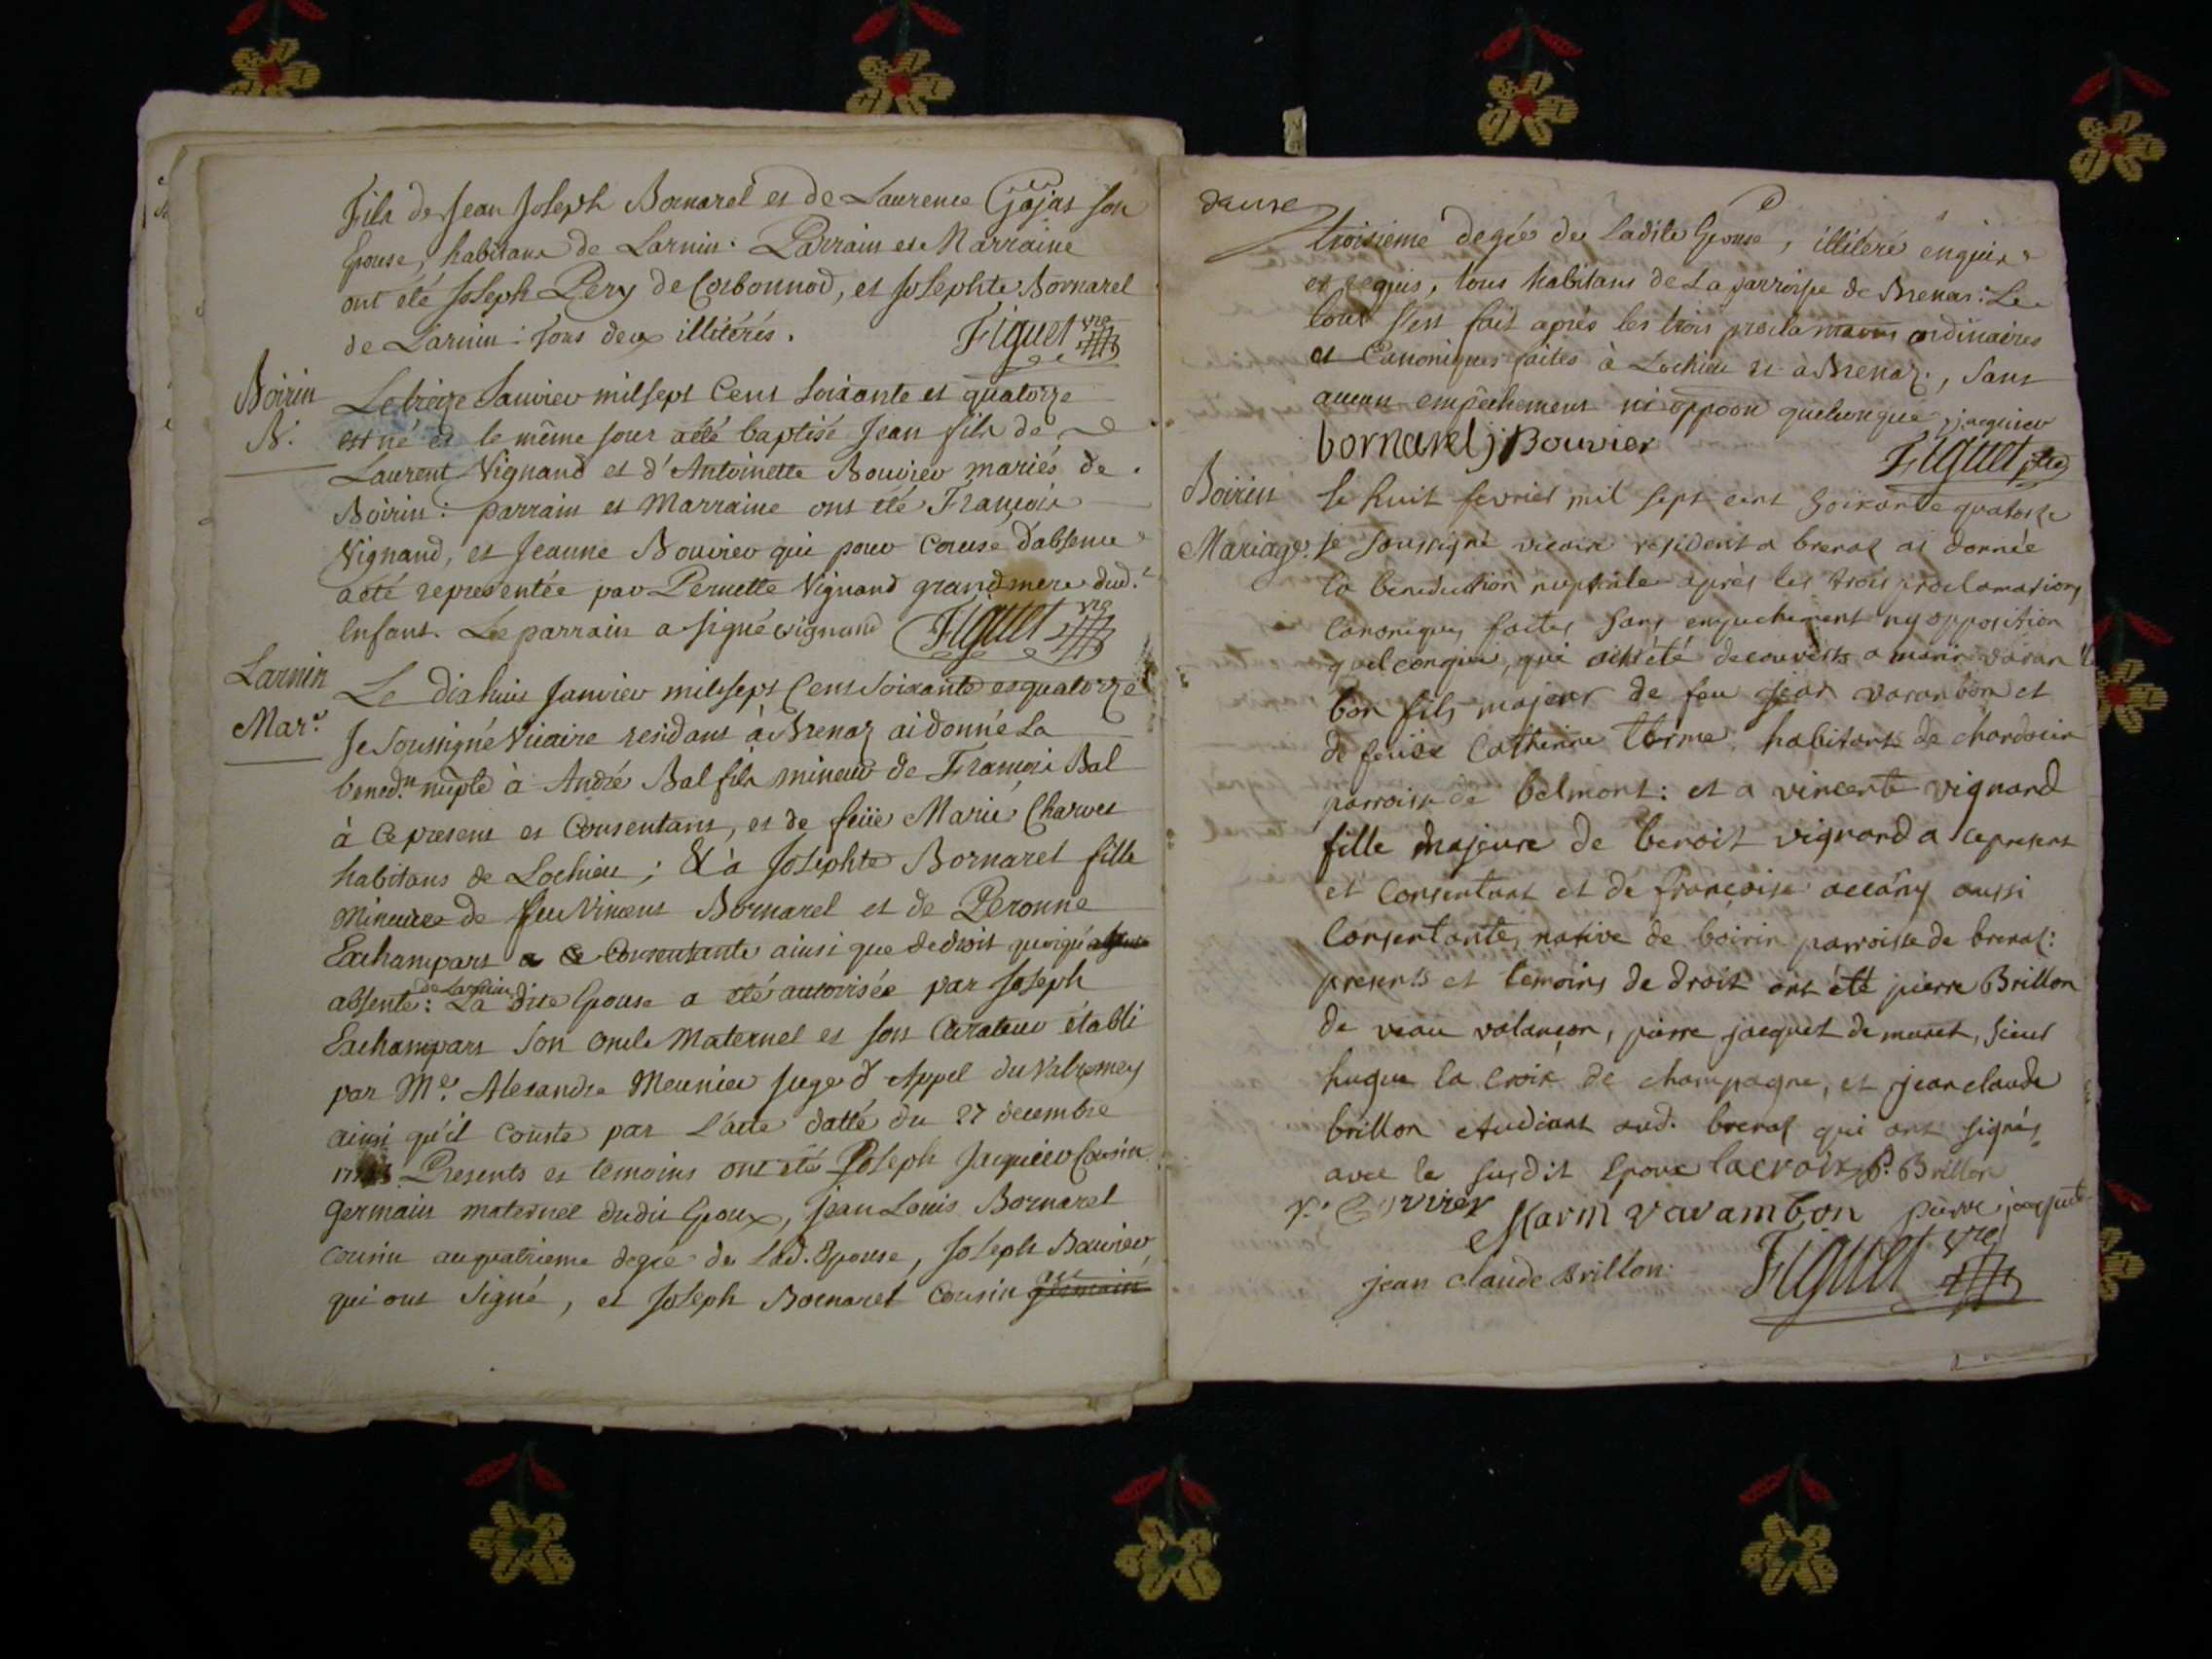 Fils de Jean Joseph Bornarel et de Laurence Gojas son
Epouse, habitans de Larnin. Parrain et Marraine
ont été Joseph Pery de Corbonnod, et Josephte Bornarel
de Larnin: tous deux illitérés. Figuet vre
Boirin
N.
Le treize Janvier mil sept Cent soixante et quatorze
est né et le même jour a été baptisé Jean fils de
Laurent Vignand et d'Antoinette Bouvier mariés de
Boirin: parrain et Marraine ont été François
Vignand, et Jeanne Bouvier qui pour Cause d'absence
a été representée par Pernette Vignand grand mere dud.t
Enfant. Le parrain a signé vignand Figuet vre
Larnin
Mar.e
Le dixhuit Janvier mil sept Cent soixante et quatorze
Je soussigné Vicaire residant à Brenaz ai donné la
bened.n nuple à André Bal fils mineur de François Bal
à Ce present et Consentant, et de feüe Marie Charvet
habitans de Lochieu; & à Josephte Bornarel fille
Mineure de feu Vincent Bornarel et de Peronne
Eachampart a Ce Consentante ainsi que de droit quoiqu'absente
absente: de Larnin La dite Epouse a été autorisée par Joseph
Eachampart son oncle Maternel et son Curateur établi
par M.e Alexandre Meunier Juge d'Appel du Valromey
ainsi qu'il Conste par l'acte datté du 27 decembre
Presents et temoins ont été Joseph Jacquier Cousin
germain maternel dudit Epoux, Jean Louis Bornarel
cousin au quatrieme degré de lad. Epouse, Joseph Bouvier
qui ont signé, et Joseph Bornarel Cousin germain au
troisieme degré de Ladite Epouse, illiteré enquis
et requis, tous habitans de La parroisse de Brenas: Le
tout s'est fait aprés les trois proclamaons ordinaires
et Canoniques faites à Lochieu et à Brenaz, sans
aucun empêchement ni oppoon quelconque jacquier
bornarel j Bouvier Figuet vre
Boirin
Mariage.
le huit fevrier mil sept cent soixante quatorze
je soussigné vicaire resident a brenas ai donnée
la benediction nuptiale après les trois proclamations
canoniques faites sans empechement ny opposition
quelconque, qui aient été decouverts a marin varan
bon fils majeur de feu jean varanbon et
de feüe Catherine terme habitants de chardosin
parroisse de belmont: et a vincente vignand
fille majeure de benoit vignand a ce present
et consentant et de françoise accány aussi
consentante, native de boirin parroisse de brenas:
presents et temoins de droit ont été pierre Brillon
de veau valançon, pierre jacquet de muret, sieur
hugue la croix de champagne, et jean claude
brillon etudiant aud. brenas qui ont signés
avec le susdit epoux lacroix P. Brillon
Marin varambon pierre jacquet
jean claude Brillon. Figuet vre